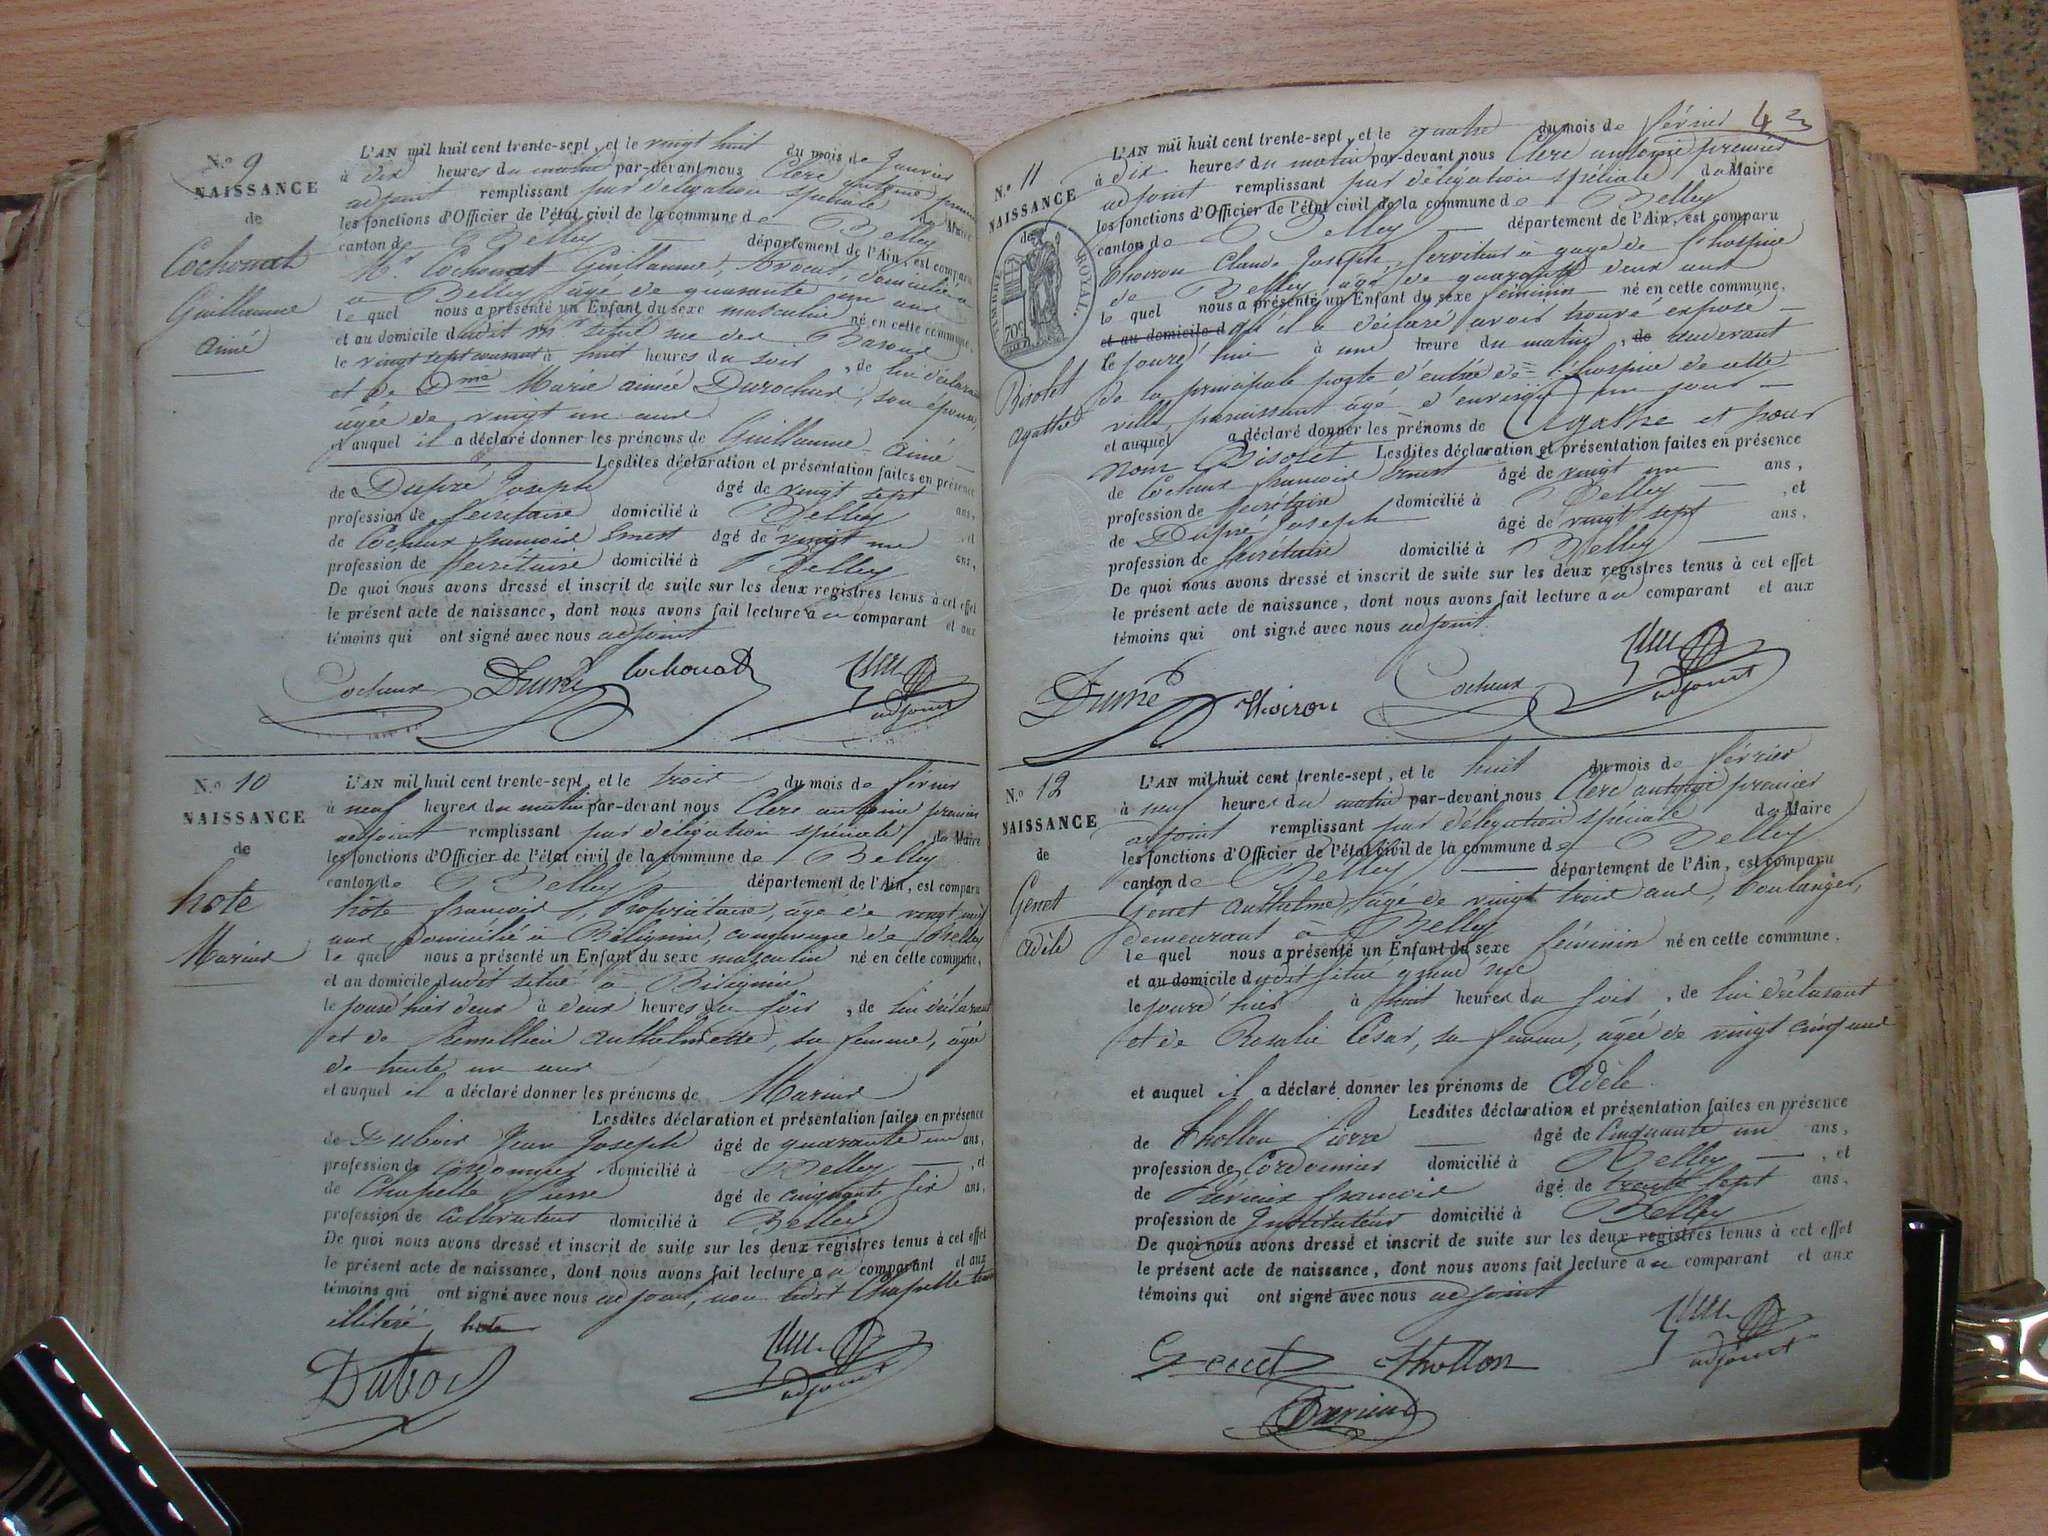 N.o 9
NAISSANCE
de
Cochonat
Guillaume
aimé
L'AN mil huit cent trente-sept, et le vingt huit du mois de Janvier
à dix heures du matin par-devant nous Clerc antoine premier
adjoint remplissant par délégation spéciale du Maire
les fonctions d'Officier de l'état civil de la commune de Belley
canton de Belley département de l'Ain, est comparu
Mr Cochonat Guillaume, Avocat, domicilié
à Belley âgé de quarante un ans
le quel nous a présenté un Enfant du sexe masculin né en cette commune,
et au domicile dudit Mr situé rue des
le vingt sept courant à huit heures du soir, de lui déclarant
et de Dme Marie aimée Durochat, son épouse,
âgée de vingt un ans
et auquel il a déclaré donner les prénoms de Guillaume aimé
Lesdites déclaration et présentation faites en présence
de Dupré Joseph âgé de vingt sept ans,
profession de secrétaire domicilié à Belley, et
de Cocheux françois Ernest âgé de vingt un ans,
profession de secrétaire domicilié à Belley
De quoi nous avons dressé et inscrit de suite sur les deux registres tenus à cet effet
le présent acte de naissance, dont nous avons fait lecture au comparant et aux
témoins qui ont signé avec nous adjoint
Cocheux Dupré Cochonat Clerc
adjoint
N.o 10
NAISSANCE
de
hote
Marius
L'AN mil huit cent trente-sept, et le trois du mois de février
à neuf heures du matin par-devant nous Clerc antoine premier
adjoint remplissant par délégation spéciale du Maire
les fonctions d'Officier de l'état civil de la commune de Belley
canton de Belley département de l'Ain, est comparu
hôte françois, Propriétaire, âgé de vingt
ans domicilié à Bélignin, commune de Belley
le quel nous a présenté un Enfant du sexe masculin né en cette commune,
et au domicile dudit situé à Bélignin
le jour d'hier deux à deux heures du soir, de lui déclarant
et de anthelmette, sa femme, âgée
de trente un ans
et auquel il a déclaré donner les prénoms de Marius
Lesdites déclaration et présentation faites en présence
de Dubois Jean Joseph âgé de quarante un ans,
profession de cordonnier domicilié à Belley, et
de Chapelle Pierre âgé de cinquante six ans,
profession de cultivateur domicilié à Belley
De quoi nous avons dressé et inscrit de suite sur les deux registres tenus à cet effet
le présent acte de naissance, dont nous avons fait lecture au comparant et aux
témoins qui ont signé avec nous adjoint, non ledit Chapelle
illitéré hote
Dubois Clerc
adjoint
43
N.o 11
NAISSANCE
de
TIMBRE ROYAL.
70c
Bisolet
agathe
L'AN mil huit cent trente-sept, et le quatre du mois de février
à dix heures du matin par-devant nous Clerc antoine premier
adjoint remplissant par délégation spéciale du Maire
les fonctions d'Officier de l'état civil de la commune de Belley
canton de Belley département de l'Ain, est comparu
Thoiron Claude Joseph, serviteur à gage de l'hospice
de Belley, âgé de quarante deux ans
le quel nous a présenté un Enfant du sexe féminin né en cette commune,
et au domicile d qu'il a déclaré avoir trouvé exposé
le jourd'hui à une heure du matin, de audevant
de la principale porte d'entrée de l'hospice de cette
ville, paraissant âgé d'environ un jour
et auquel a déclaré donner les prénoms de Agathe et pour
nom Bisolet Lesdites déclaration et présentation faites en présence
de Cocheux françois Ernest âgé de vingt un ans,
profession de secrétaire domicilié à Belley, et
de Dupré Joseph âgé de vingt sept ans,
profession de secrétaire domicilié à Belley
De quoi nous avons dressé et inscrit de suite sur les deux registres tenus à cet effet
le présent acte de naissance, dont nous avons fait lecture au comparant et aux
témoins qui ont signé avec nous adjoint
Dupré Thoiron Cocheux Clerc
adjoint
N.o 12
NAISSANCE
de
Genet
adèle
L'AN mil huit cent trente-sept, et le huit du mois de février
à neuf heures du matin par-devant nous Clerc antoine premier
adjoint remplissant par délégation spéciale du Maire
les fonctions d'Officier de l'état civil de la commune de Belley
canton de Belley département de l'Ain, est comparu
Genet anthelme, âgé de vingt trois ans, boulanger,
demeurant à Belley
le quel nous a présenté un Enfant du sexe féminin né en cette commune,
et au domicile dudit situé grand'rue
le jourd'hier à huit heures du soir, de lui déclarant
et de Rosalie César, sa femme, âgée de vingt cinq ans
et auquel il a déclaré donner les prénoms de adèle
Lesdites déclaration et présentation faites en présence
de thollon Pierre âgé de cinquante un ans,
profession de Cordonnier domicilié à Belley, et
de françois âgé de trente sept ans,
profession de Instituteur domicilié à Belley
De quoi nous avons dressé et inscrit de suite sur les deux registres tenus à cet effet
le présent acte de naissance, dont nous avons fait lecture au comparant et aux
témoins qui ont signé avec nous adjoint
Genet thollon Clerc
adjoint